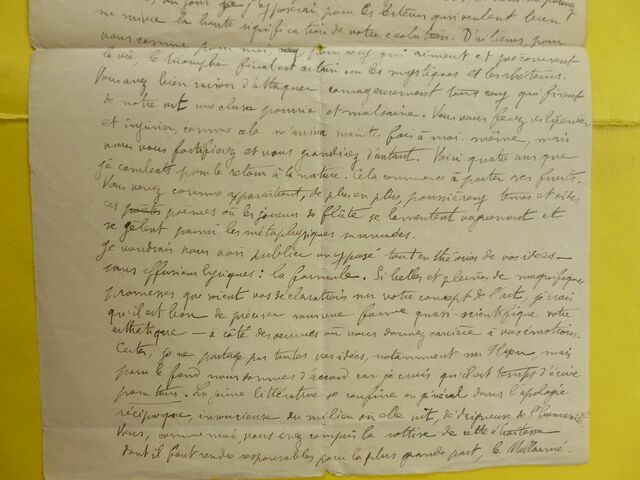 un jour je l'exposerai pour les lecteurs qui veulent bien
me suivre la haute signification de votre évolution. D'ailleurs, pour
vous comme pour moi pour ceux qui aiment et préconisent
la vie le triomphe final est certain sur les mystiques et les rhéteurs.
Vous avez bien raison d'attaquer courageusement tous ceux qui firent
de notre art une chose pourrie et malsaine. Vous vous ferez vilipender
et injurier, comme cela m'arriva maintes fois à moi-même, mais
vous vous fortifierez et vous grandirez d'autant. Voici quatre ans que
je combats pour le retour à la nature. Cela commence à porter ses fruits.
Vous verrez comme apparaîtront, de plus en plus, poussiéreux ternes et vides
ces poèmes où les joueurs de flûte se lamentent vaguement et
se gèlent parmi les métaphysiques
Je voudrais vous voir publier un exposé tout en théories de vos idées —
sans effusions lyriques : la formule. Si belles et pleines de magnifiques
promesses que soient vos déclarations sur votre concept de l'art, je crois
qu'il est bon de préciser sous une forme quasi-scientifique votre
esthétique — à côté des œuvres où vous donnez carrière à vos émotions.
Certes, je ne partage pas toutes vos idées, notamment sur mais
pour le fond nous sommes d'accord car je crois qu'il est temps d'écrire
pour tous. La jeune littérature se confine en général dans l'apologie
réciproque, insoucieuse du milieu où elle vit, dédaigneuse de l'humanité.
Vous, comme moi, vous avez compris la sottise de cette
dont il faut rendre responsables pour la plus grande part, le Mallarmé.